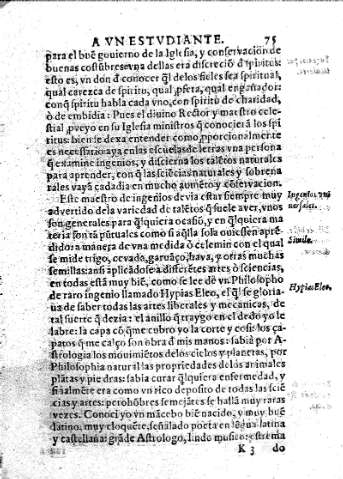 A VN ESTVDIANTE. 75
para el buẽ gouierno de la Iglesia, y conseruaciõ de
buenas costũbres vna dellas era discreciõ d'spiritus:
esto es, vn don d'conocer ql de los fieles sea spiritual,
qual carezca de spiritu, qual ,pfeta, qual engañador:
conq̃ spiritu habla cada vno, con spiritu de charidad,
ò de embidia: Pues el diuino Rector y maestro celestial
,pueyo en su Iglesia ministros q̃ conociessẽ los spi
ritus: bien se dexa entender como ,pporcionalmente
es necessaria aya en las escuelas de letras vna persona
q̃ examine ingenios, y discierna los talẽtos naturales
para aprender, con q̃ las sciẽcias naturales y sobrena
rales vayã cada dia en mucho aumẽto y cõseruacion.
Este maestro de ingenios deuia estar siempre muy
aduertido de la variedad de talẽtos q̃ suele auer, vnos
son generales para qlquiera ocasiõ, y en qlquiera ma
teria son tã puntuales como si aqlla sola ouiessen apre
dido: a manera de vna medida ò celemin con el qual
se mide trigo, ceuada, garuaço, haua, y otras muchas
semillas: ansi aplicãdose a differẽtes artes ò sciencias,
en todas està muy biẽ, como se lee dẽ vn Philosopho
de raro ingenio llamado Hypias Eleo, el ql se gloria
ua de saber todas las artes liberales y mecanicas, de
tal suerte q̃ dezia: el anillo q̃ traygo en el dedo yo le
labre: la capa cõ q̃ me cubro yo la corte y cosi: los ça
patos q̃ me calço son obra d'mis manos: sabia por A-
strologia los mouimiẽtos de los cielos y planetas, por
Philosophia natural las propriedades de los animales
plãtas y piedras: sabia curar qlquiera enfermedad, y
finalmẽte era como vn rico deposito de todas las sciẽ
cias y artes: pero hõbres semejãtes se hallã muy raras
vezes. Conoci yo vn mãcebo biẽ nacido, y muy buẽ
latino, muy eloquẽte, señalado poeta en lẽgua latina
y castellana: grãde Astrologo, lindo musico: estrema
K 3 do
Simile.
Hypias Eleo.